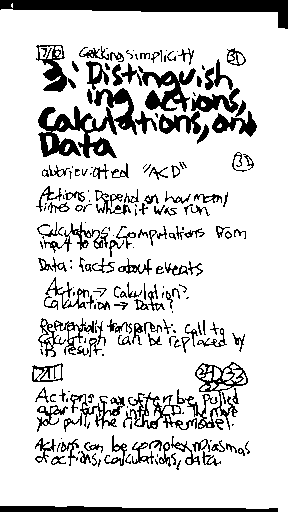 7/10 Grokking Simplicity 31
3: Distinguish
ing actions,
Calculations, and
Data
abbrieviated "ACD" 31
Actions: Depend on how many
times or when it was run
Calculations: Computations from
input to output.
Data: facts about events
Action → Calculation?
Calculation → Data?
Referentially transparent: call to
calculation can be replaced by
its result.
Actions can often be pulled
apart further into ACD. The more
you pull, the richer the model.
Actions can be complex miasmas
of actions, calculations, data.